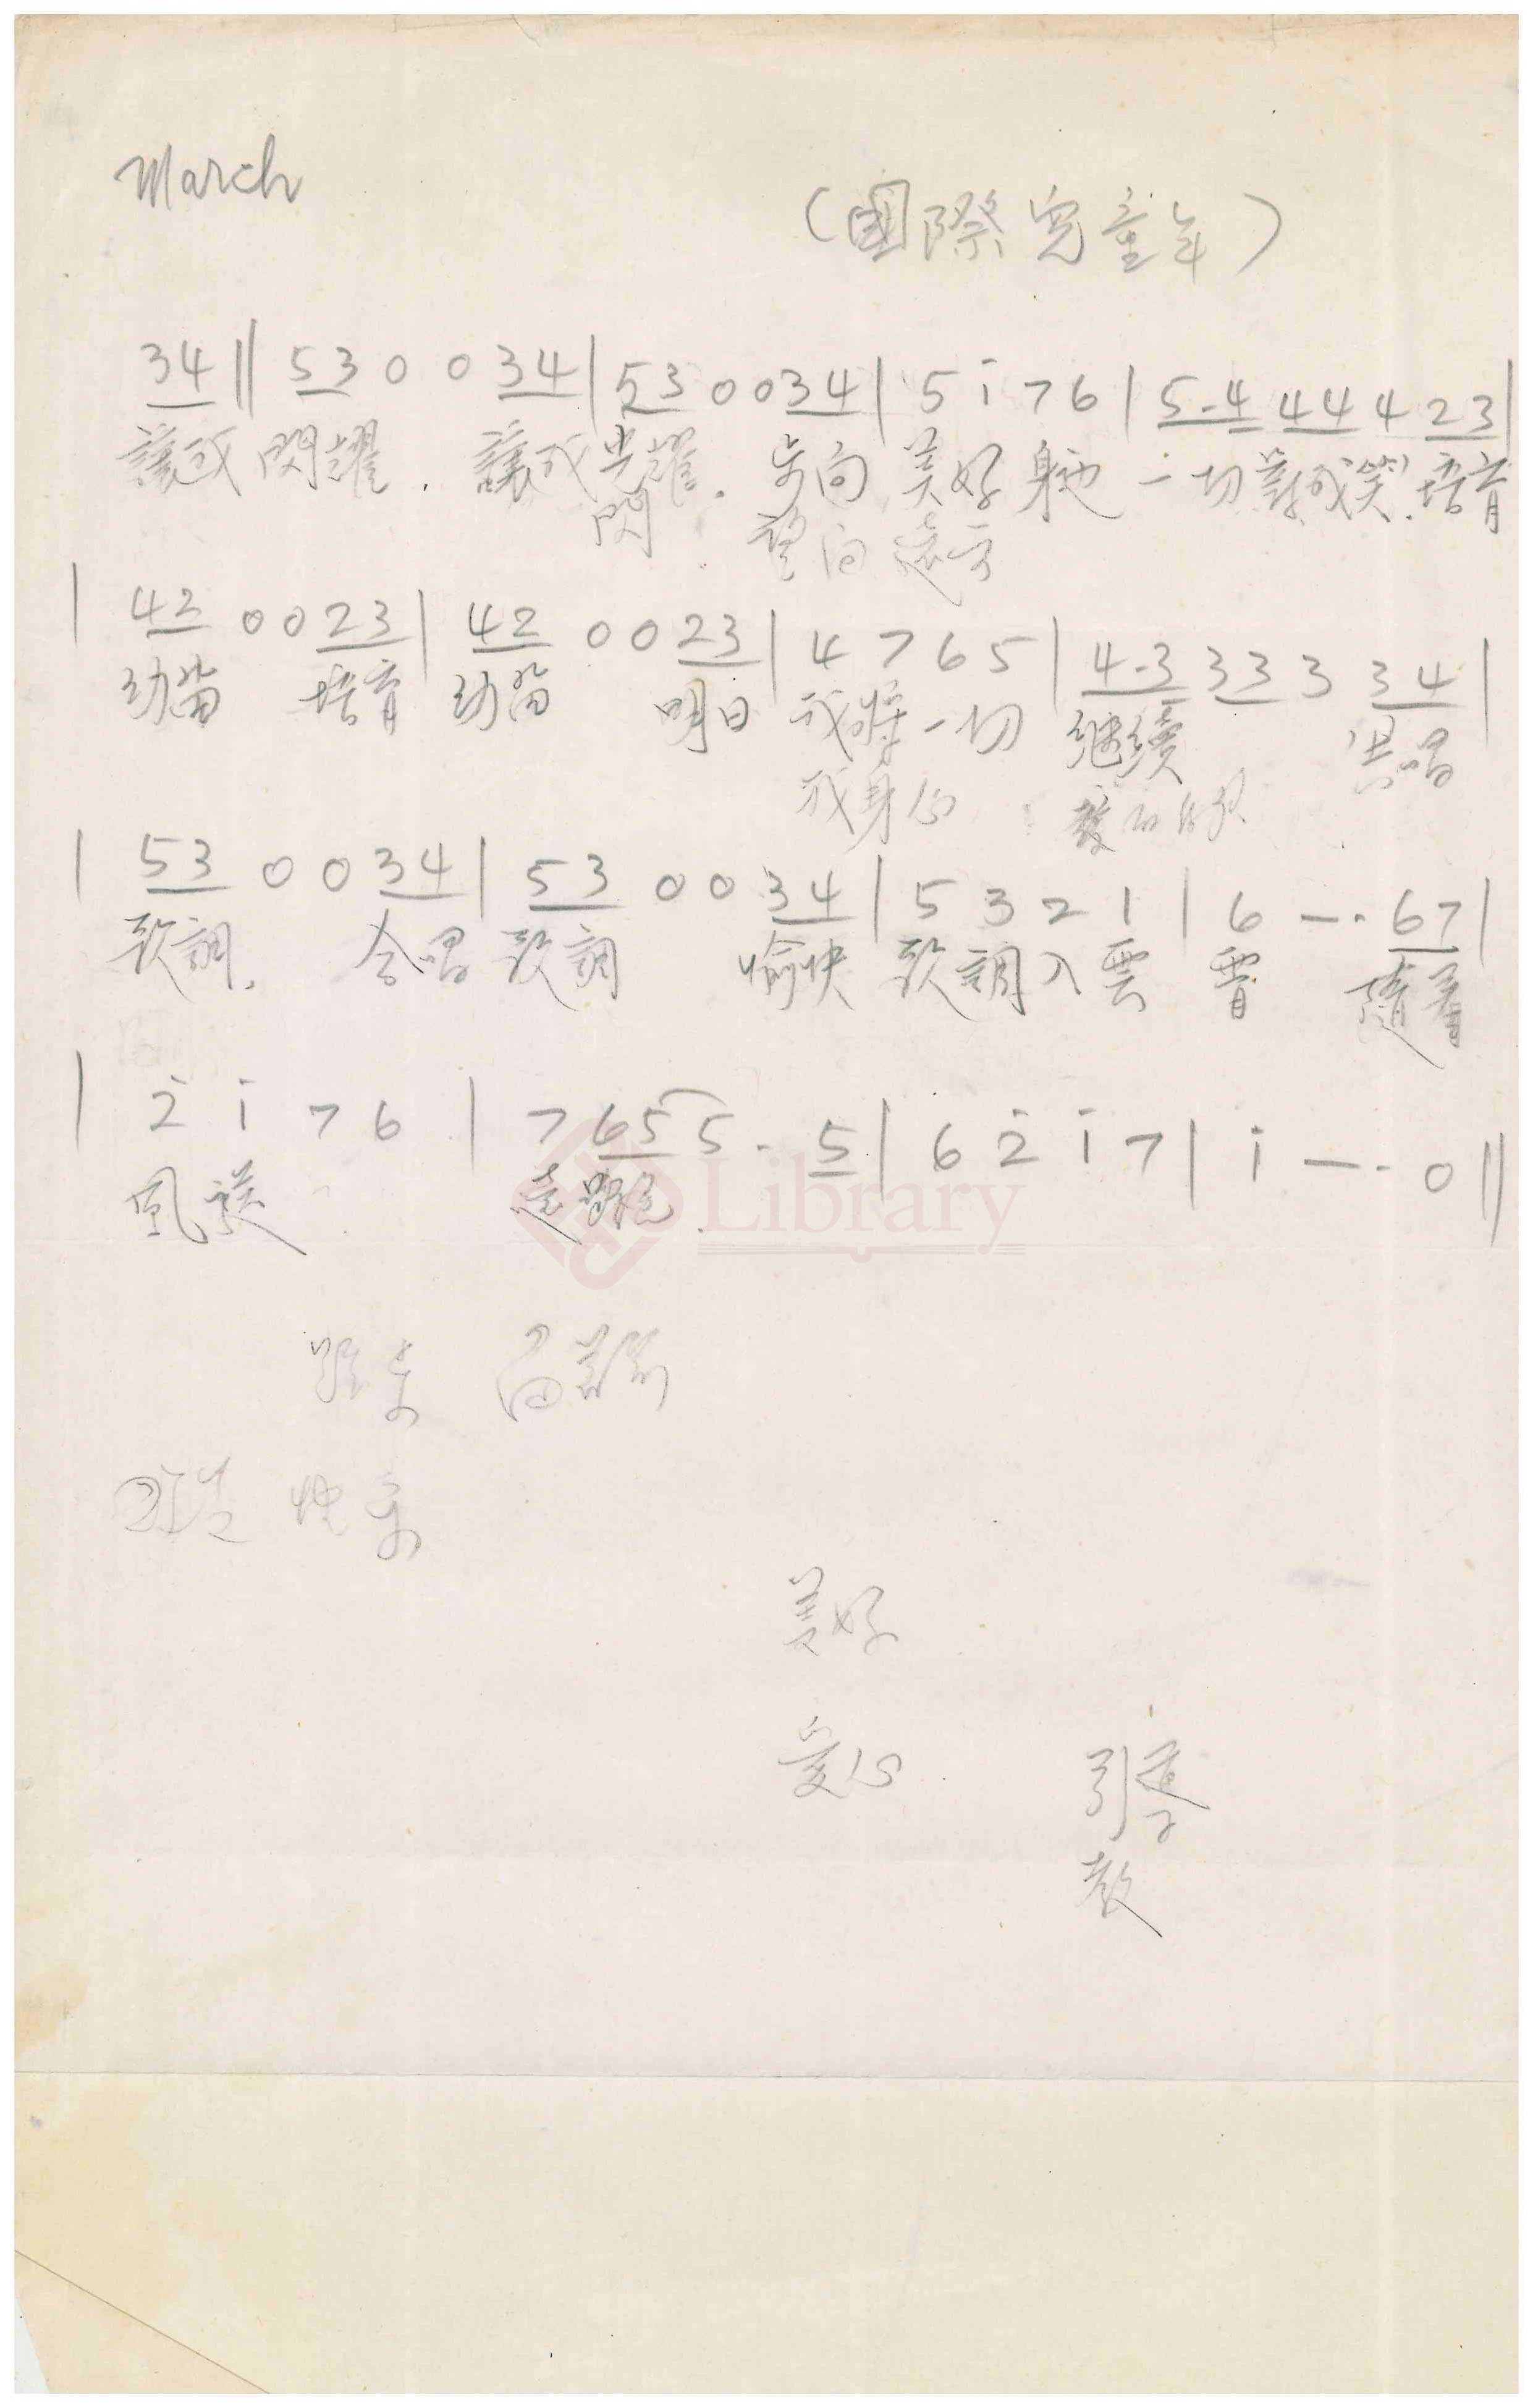 March
（國際兒童年）
34 || 53 0 0 34 | 53 0 0 34 | 5 i 7 6 | 5.4 44 4 23 |
讓我閃耀．讓我光耀．步向美好 一切對我笑．培育
閃 望向遠方
| 42 0 0 23 | 42 0 0 23 | 4 7 6 5 | 4.3 33 3 34 |
幼苗 培育幼苗 明日我將一切繼續 共唱
我身心
| 53 0 0 34 | 53 0 0 34 | 5 3 2 1 | 6 — · 67 |
歌調． 合唱歌調 愉快歌調入雲霄 隨着
| 2̇ i 7 6 | 7 65 5 . 5 | 6 2̇ i 7 | i — · 0 ||
風送 遠
Library
快樂
美好
愛心 引導
教